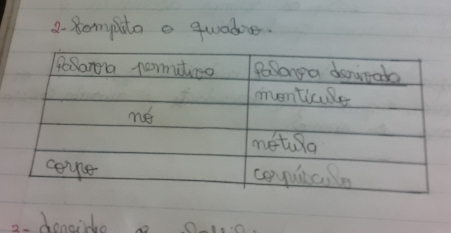 2- Complita o quadro.
Palavra permitivo Palavra derivado
montículo
nó
nótula
corpo corpúsculo